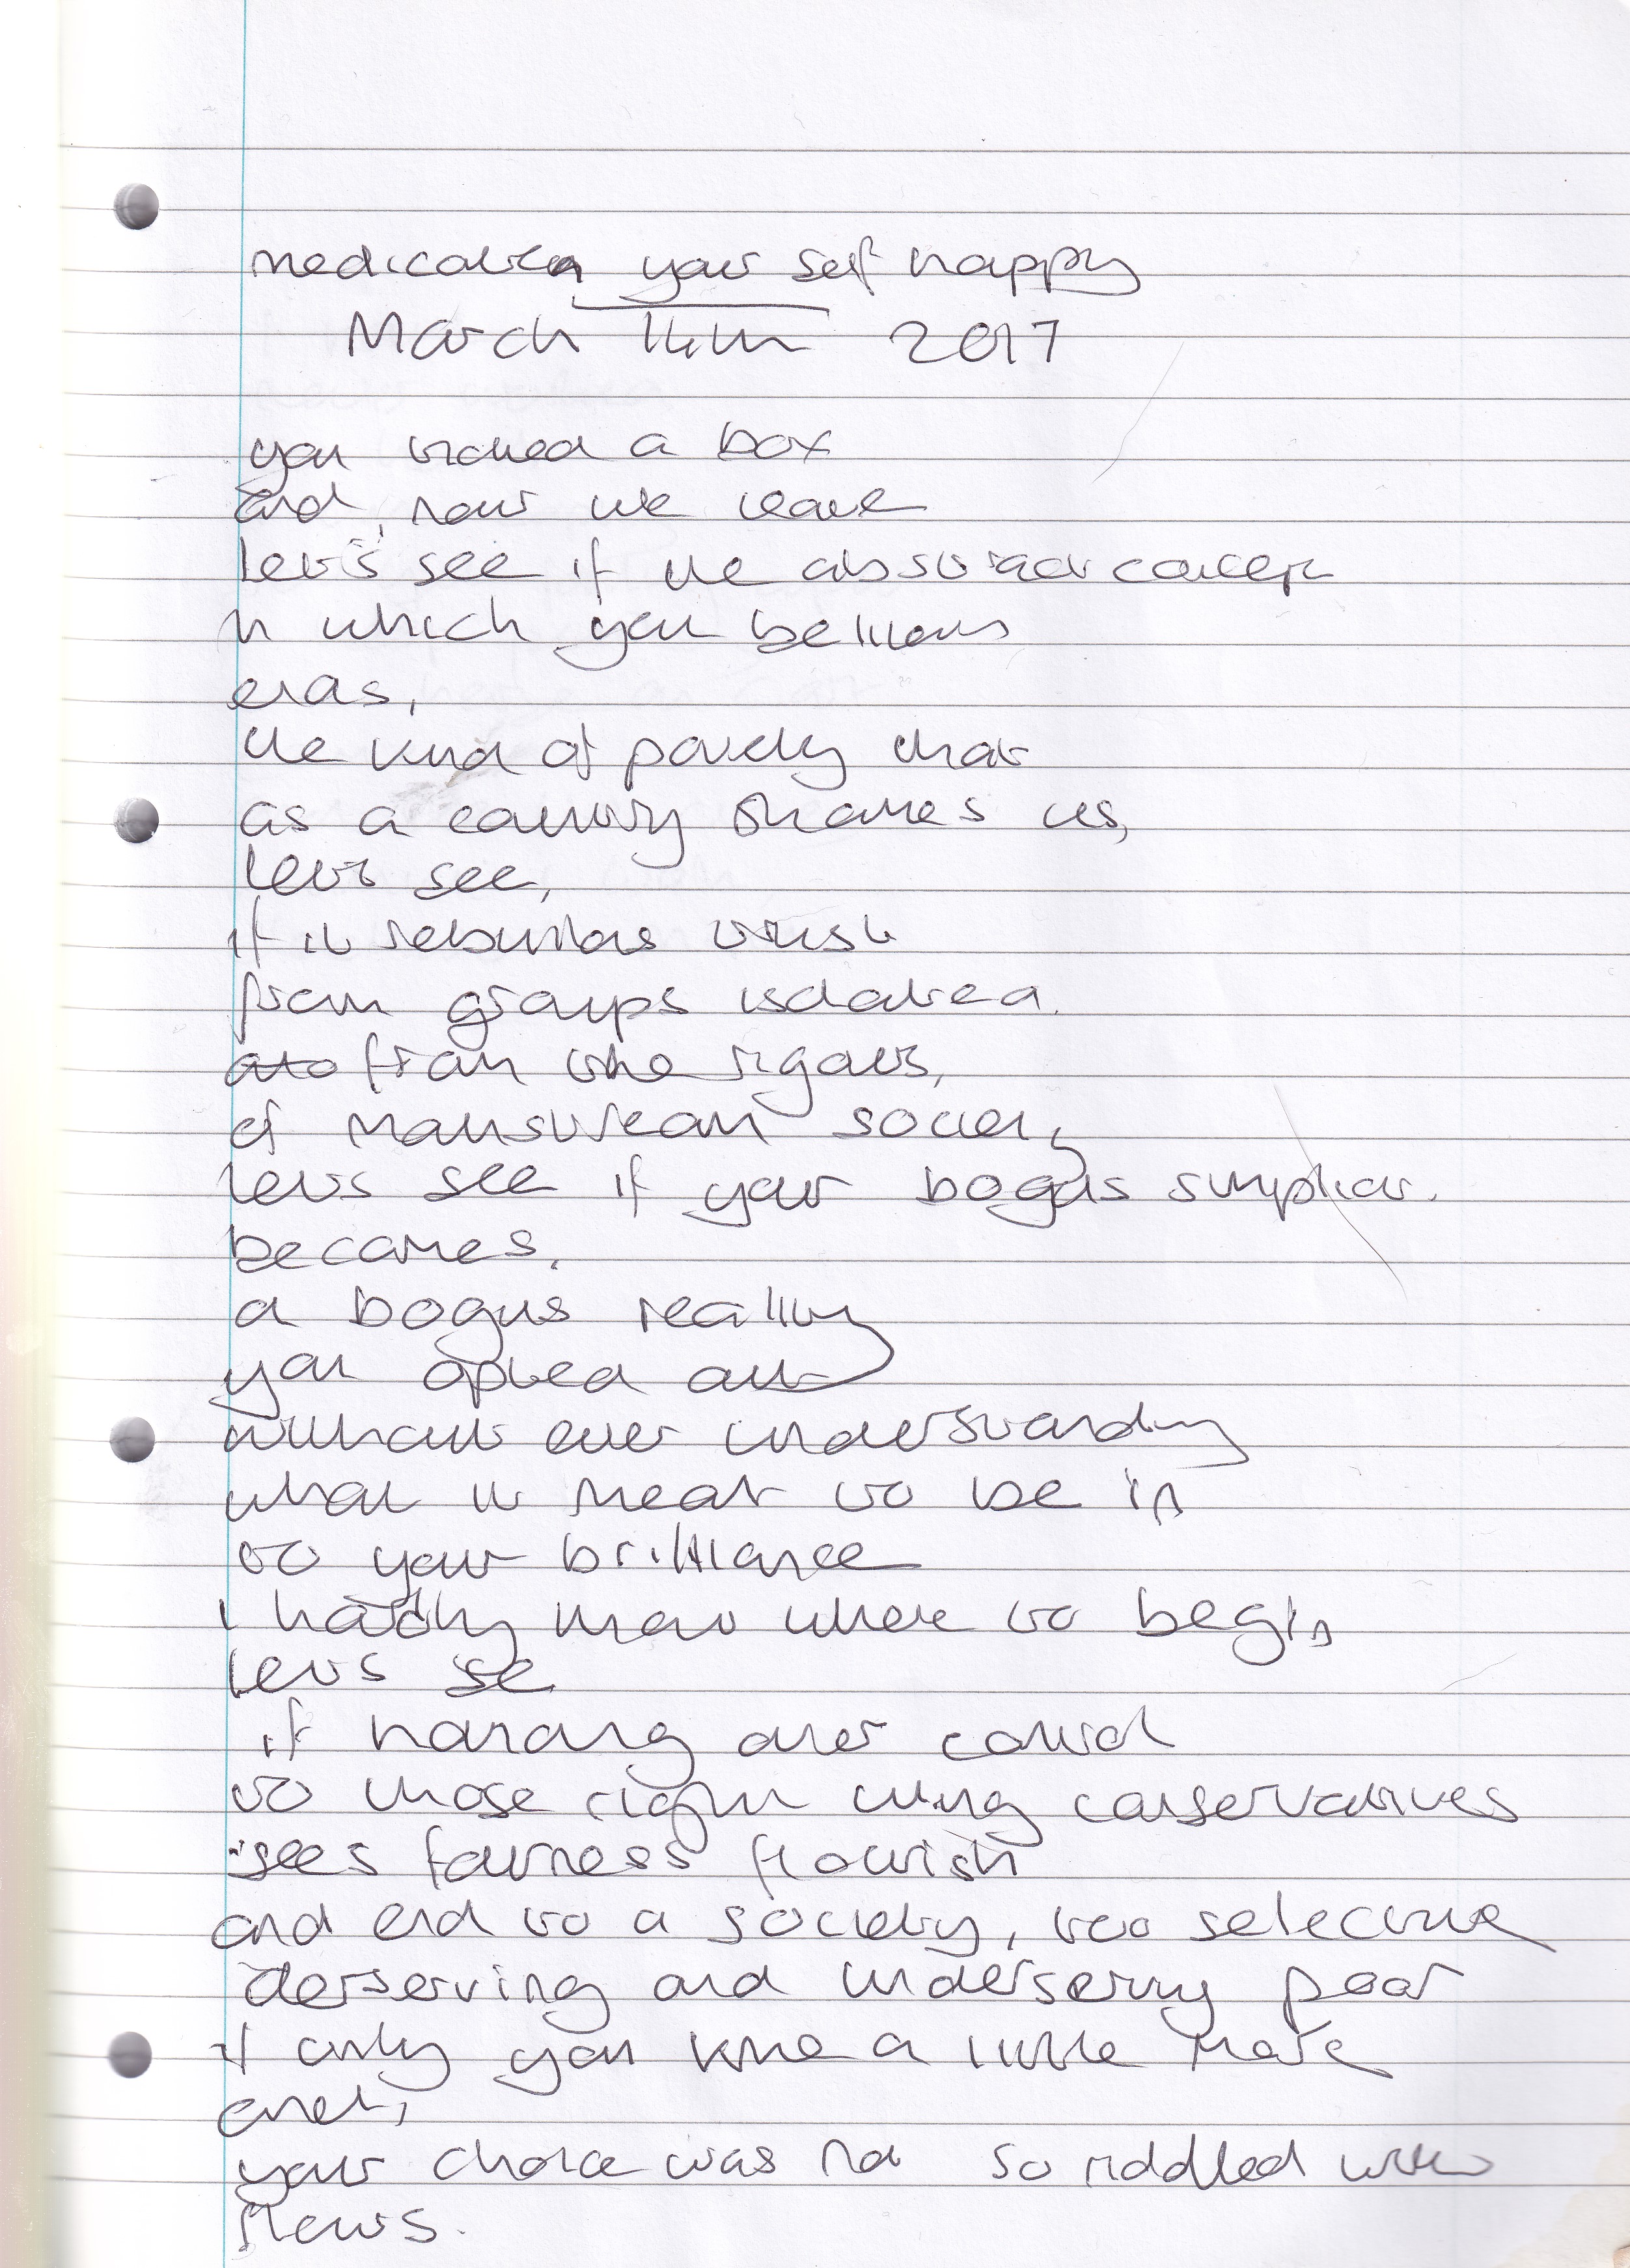 medicated your self happy
March 14th 2017
you ticked a box
and, now we leave
let's see if the abstract concept
in which you believe
ends,
the kind of poverty that
as a country shames us,
let's see,
if it rebuilds trust
from groups isolated.
from the rigours,
of mainstream society
lets see if your bogus
becomes.
a bogus reality
you opted out
without ever understanding
what it meat to be in
to your brilliance
I hardly know where to begin
lets se
if handing over control
to those right wing conservatives
sees fairness flourish
and end to a society, too selective
derserving and underserving poor
if only you kne a little more
and,
your choice was not so riddled with
flews.